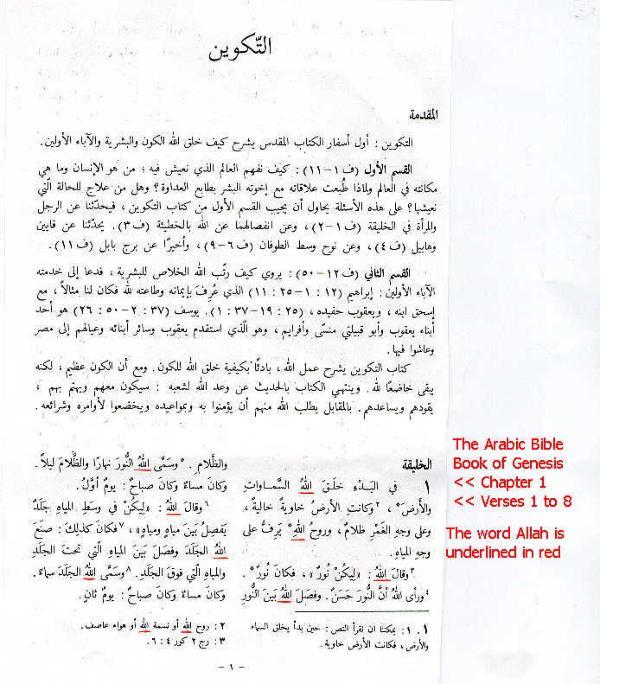 التّكوين
المقدمة
التكوين : أول أسفار الكتاب المقدس يشرح كيف خلق الله الكون والبشرية والآباء الأولين.
القسم الأول (ف ١-١١) : كيف نفهم العالم الذي نعيش فيه ؛ من هو الإنسان وما هي
مكانته في العالم ولماذا طُبعت علاقاته مع إخوته البشر بطابع العداوة؟ وهل من علاج للحالة الّتي
نعيشها؟ على هذه الأسئلة يحاول أن يجيب القسم الأول من كتاب التكوين ، فيحدّثنا عن الرجل
والمرأة في الخليقة (ف ١-٢) ، وعن انفصالهما عن الله بالخطيئة (ف ٣). يحدّثنا عن قايين
وهابيل (ف ٤)، وعن نوح وسط الطوفان (ف ٦-٩)، وأخيرًا عن برج بابل (ف ١١).
القسم الثاني (ف ١٢-٥٠) : يروي كيف رتّب الله الخلاص للبشرية ، فدعا إلى خدمته
الآباء الأولين : إبراهيم (١٢ : ١-٢٥ : ١١) الذي عُرفَ بإيمانه وطاعته لله فكان لنا مثالاً ، مع
إسحق ابنه ، ويعقوب حفيده، (٢٥ : ١٩-٣٧ : ١). يوسف (٣٧ : ٢-٥٠ : ٢٦) هو أحد
أبناء يعقوب وأبو قبيلتي منسّى وأفرايم ، وهو الّذي استقدم يعقوب وسائر أبنائه وعيالهم إلى مصر
وعاشوا فيها.
كتاب التكوين يشرح عمل الله ، بادئًا بكيفية خلق الله للكون. ومع أن الكون عظيم ، لكنه
يبقى خاضعًا لله. وينتهي الكتاب بالحديث عن وعد الله لشعبه : سيكون معهم ويهتم بهم ،
يقودهم ويساعدهم. بالمقابل يطلب الله منهم أن يؤمنوا به وبمواعيده ويخضعوا لأوامره وشرائعه.
الخليقة
١ في البَدْءِ خلَقَ اللهُ السَّماواتِ
والأرضَ ، ٢وكانَتِ الأرضُ خاوِيةً خالِيةً ،
وعلى وجهِ الغَمْرِ ظلامٌ ، وروحُ اللهِ يَرِفُّ على
وجهِ المياهِ.
٣وقالَ اللهُ : «لِيكُنْ نُورٌ» ، فكانَ نُورٌ.
٤ورأى اللهُ أنَّ النُّورَ حسَنٌ. وفصَلَ اللهُ بَينَ النُّورِ
والظَّلامِ. ٥وسَمَّى اللهُ النُّورَ نهارًا والظَّلامَ ليلاً.
وكانَ مساءٌ وكانَ صباحٌ : يومٌ أوَّلُ.
٦وقالَ اللهُ : «لِيكُنْ في وسَطِ المياهِ جَلَدٌ
يَفصِلُ بَينَ مياهٍ ومياهٍ» ، ٧فكانَ كذلِكَ : صنَعَ
اللهُ الجَلَدَ وفصَلَ بَينَ المياهِ الّتي تحتَ الجَلَدِ
والمياهِ الّتي فَوقَ الجَلَدِ. ٨وسَمَّى اللهُ الجَلَدَ سماءً.
وكانَ مساءٌ وكانَ صباحٌ : يومٌ ثانٍ.
١. ١ : يمكننا ان نقرأ النص : حين بدأ يخلق السماء
والأرض ، فكانت الأرض خاوية.
٢ : روح الله أو نسمة الله أو هواء عاصف.
٣ : رج ٢ كور ٤ : ٦.
- ١ -
The Arabic Bible
Book of Genesis
<< Chapter 1
<< Verses 1 to 8
The word Allah is
underlined in red